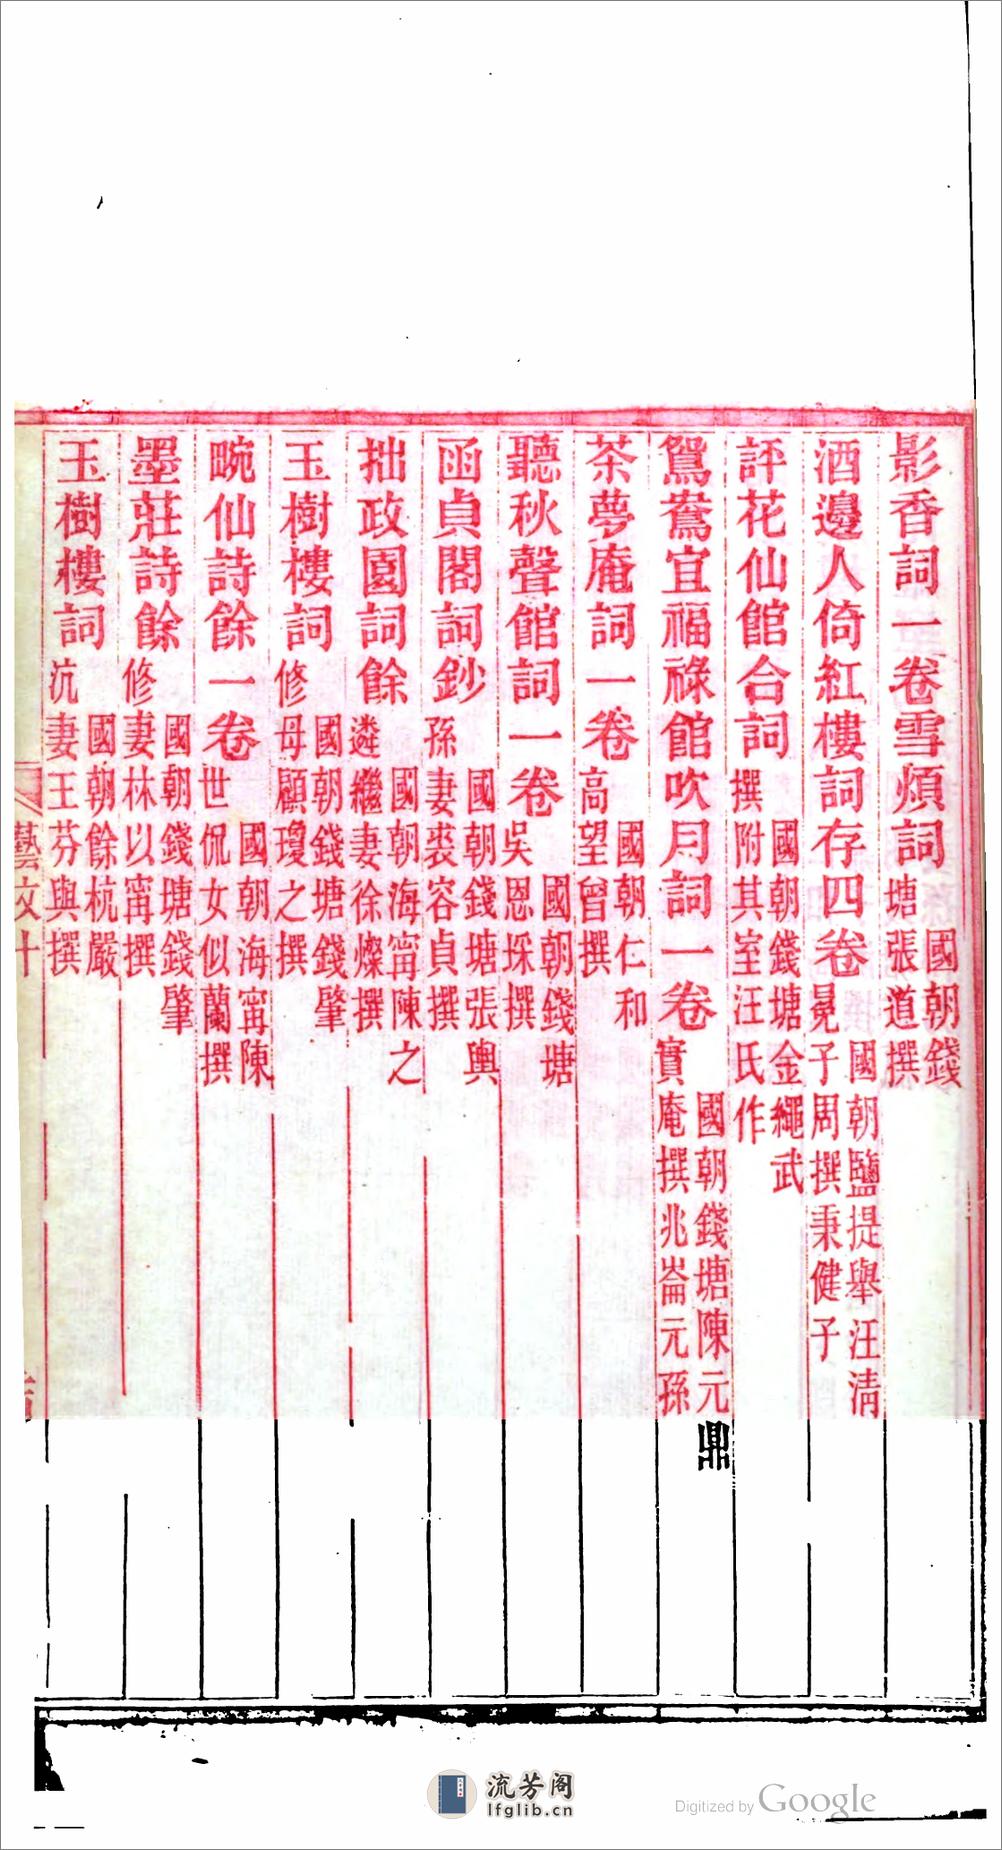 影香詞一卷雪煩詞國朝錢塘張道撰
酒邊人倚紅樓詞存四卷國朝鹽提舉汪淸冕子周撰秉健子
評花仙館合詞國朝錢塘金繩武撰附其室汪氏作
鴛鴦宜福祿館吹月詞一卷國朝錢塘陳元鼎實庵撰兆崙元孫
茶夢庵詞一卷國朝仁和高望曾撰
聽秋聲館詞一卷國朝錢塘吳恩琛撰
函貞閣詞鈔國朝錢塘張輿孫妻裘容貞撰
拙政園詞餘國朝海甯陳之遴繼妻徐燦撰
玉樹樓詞國朝錢塘錢肇修母顧瓊之撰
畹仙詩餘一卷國朝海甯陳世侃女似蘭撰
墨莊詩餘國朝錢塘錢肇修妻林以甯撰
玉樹樓詞國朝餘杭嚴沆妻王芬與撰
藝文十
流芳阁
lfglib.cn
Digitized by Google